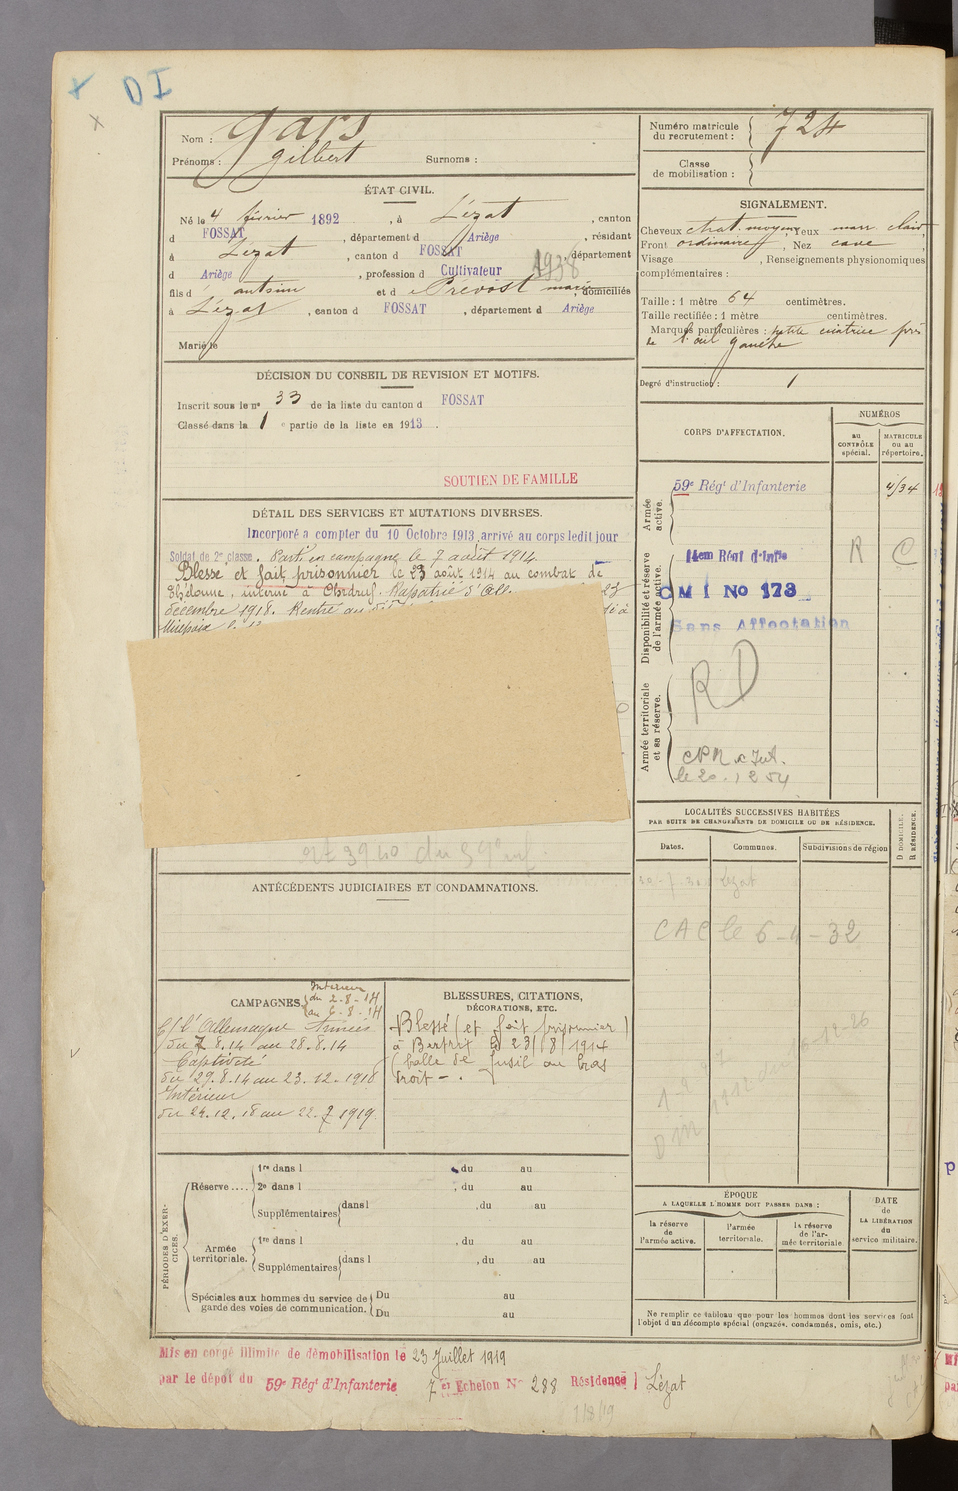 DI
Nom : Gars
Prénoms : Gilbert Surnoms :
ÉTAT CIVIL.
Né le 4 février 1892, à Lézat, canton
d FOSSAT, département d Ariège, résidant
à Lézat, canton d FOSSAT, département
d Ariège, profession d Cultivateur 1938
fils d antoine et d Prévost marie, domiciliés
à Lézat, canton d FOSSAT, département d Ariège
Marié le
DÉCISION DU CONSEIL DE REVISION ET MOTIFS.
Inscrit sous le nº 33 de la liste du canton d FOSSAT
Classé dans la 1 e partie de la liste en 1913.
SOUTIEN DE FAMILLE
DÉTAIL DES SERVICES ET MUTATIONS DIVERSES.
Incorporé à compter du 10 Octobre 1913, arrivé au corps ledit jour
Soldat de 2e classe. Parti en campagne le 7 août 1914
Blessé et fait prisonnier le 23 août 1914 au combat de
interné à Ohrdruf. Rapatrié d'All 23
décembre 1918. Rentré au
Mirepoix le
du 59e inf.
ANTÉCÉDENTS JUDICIAIRES ET CONDAMNATIONS.
CAMPAGNES.
Intérieur
du 2-8-14
au 6-8-14
C/ l'Allemagne Armées
du 7.8.14 au 28.8.14
Captivité
du 29.8.14 au 23.12.1918
Intérieur
du 24.12.18 au 22.7.1919
BLESSURES, CITATIONS,
DÉCORATIONS, ETC.
Blessé (et fait prisonnier)
à Bertrix le 23/8/1914
(balle de fusil au bras
droit -.
PÉRIODES D'EXERCICES.
Réserve ....
1re dans l , du au
2e dans l , du au
Supplémentaires dans l , du au
Armée territoriale.
1re dans l , du au
Supplémentaires dans l , du au
Spéciales aux hommes du service de garde des voies de communication.
Du au
Du au
Mis en congé illimité de démobilisation le 23 Juillet 1919
par le dépôt du 59e Régt d'Infanterie 7 e Echelon Nº 288 Résidence Lézat
1/8/19
Numéro matricule
du recrutement : 724
Classe
de mobilisation :
SIGNALEMENT.
Cheveux chat. moyens, Yeux marr. clair,
Front ordinaire, Nez cave,
Visage , Renseignements physionomiques
complémentaires :
Taille : 1 mètre 64 centimètres.
Taille rectifiée : 1 mètre centimètres.
Marques particulières : petite cicatrice près
de l'œil gauche
Degré d'instruction : 1
CORPS D'AFFECTATION.
NUMÉROS
au CONTRÔLE spécial.
MATRICULE ou au répertoire.
Armée active.
59e Régt d'Infanterie 4134
Disponibilité et réserve de l'armée active.
14em Régt d'Infie R C
CMI No 173
Sans Affectation
Armée territoriale et sa réserve.
RD
LOCALITÉS SUCCESSIVES HABITÉES
PAR SUITE DE CHANGEMENTS DE DOMICILE OU DE RÉSIDENCE.
Dates.
Communes.
Subdivisions de région
D DOMICILE.
R RÉSIDENCE.
Lézat
CAC le 6-4-32
16-12-26
DM
ÉPOQUE
A LAQUELLE L'HOMME DOIT PASSER DANS :
la réserve
de
l'armée active.
l'armée
territoriale.
la réserve
de l'ar-
mée territoriale
DATE
de
LA LIBÉRATION
du
service militaire.
Ne remplir ce tableau que pour les hommes dont les services font
l'objet d'un décompte spécial (engagés, condamnés, omis, etc.)